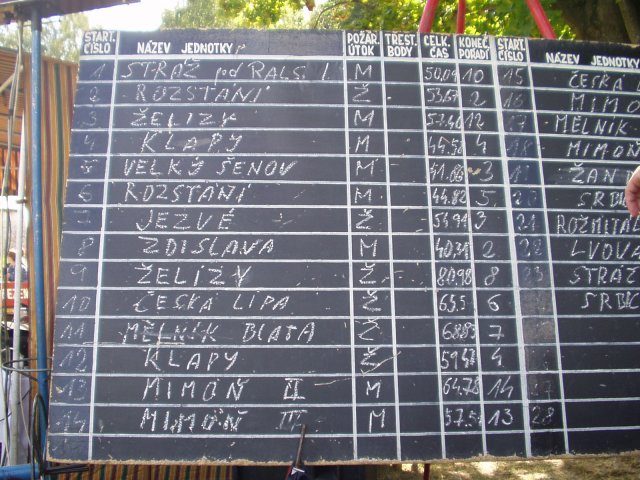 START. ČÍSLO NÁZEV JEDNOTKY POŽÁR. ÚTOK TREST. BODY CELK. ČAS KONEČ. POŘADÍ START. ČÍSLO NÁZEV JEDNOTKY
1 STRÁŽ pod RALS. I. M 50,09 10 15 ČESKÁ
2 ROZSTÁNÍ Ž 53,67 2 16 MIMO
3 ŽELIZY M 57,46 12 17 MĚLNÍK
4 KLAPY M 44,52 4 18 MIMOŇ
5 VELKÝ ŠENOV M 41,86 3 ŽAND
6 ROZSTÁNÍ M 44,82 5 SRB
7 JEZVÉ Ž 54,91 3 21 ROŽMITÁL
8 ZDISLAVA M 40,31 2 22 LVOVÁ
9 ŽELÍZY Ž 80,98 8 23 STRÁŽ
10 ČESKÁ LÍPA Ž 65,5 6 SRB
11 MĚLNÍK BLATA Ž 68,83 7
12 KLAPY Ž 59,47 4
13 MIMOŇ II M 64,78 14 27
14 MIMOŇ III M 57,51 13 28